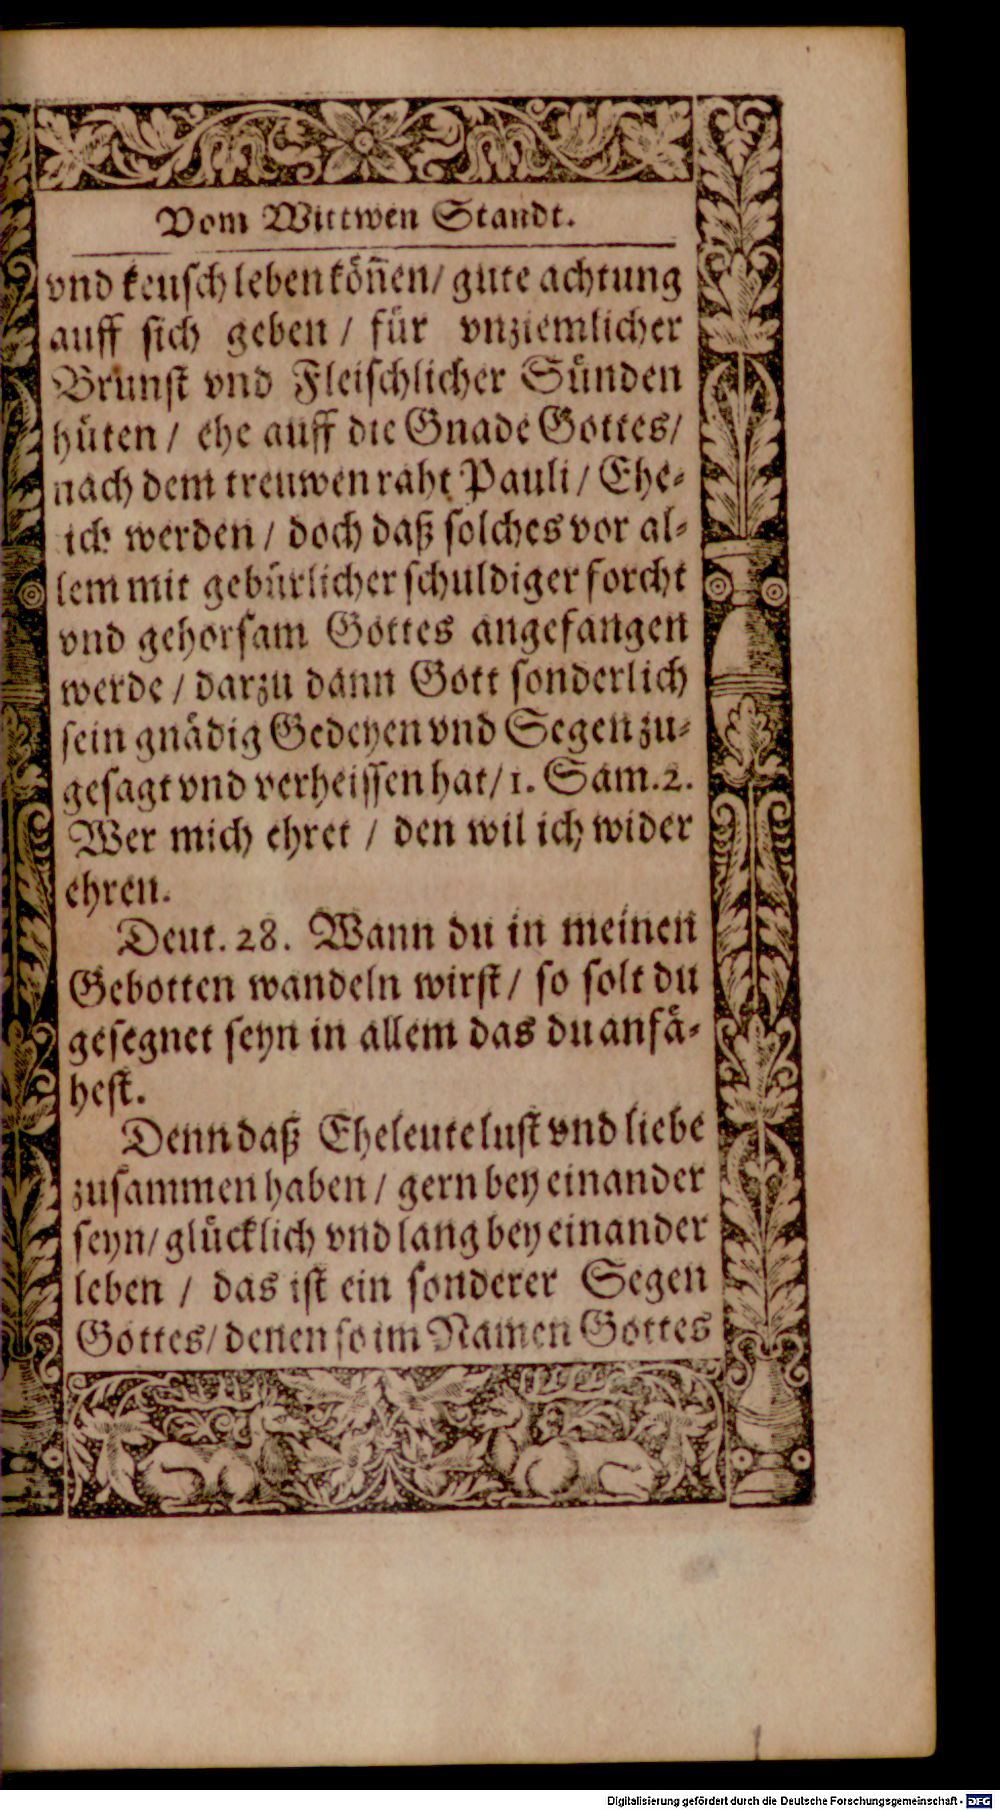 Vom Wittwen Standt.
vnd keusch leben köñen/ gute achtung
auff sich geben / für vnziemlicher
Brunst vnd Fleischlicher Sünden
hüten / ehe auff die Gnade Gottes/
nach dem treuwen raht Pauli / Ehe-
ich werden / doch daß solches vor al-
lem mit gebürlicher schuldiger forcht
vnd gehorsam Gottes angefangen
werde / darzu dann Gott sonderlich
sein gnädig Gedeyen vnd Segen zu-
gesagt vnd verheissen hat/ 1. Sam. 2.
Wer mich ehret / den wil ich wider
ehren.
Deut. 28. Wann du in meinen
Gebotten wandeln wirst / so solt du
gesegnet seyn in allem das du anfä-
hest.
Denn daß Eheleute lust vnd liebe
zusammen haben / gern bey einander
seyn/ glücklich vnd lang bey einander
leben / das ist ein sonderer Segen
Gottes/ denen so im Namen Gottes
Digitalisierung gefördert durch die Deutsche Forschungsgemeinschaft - DFG